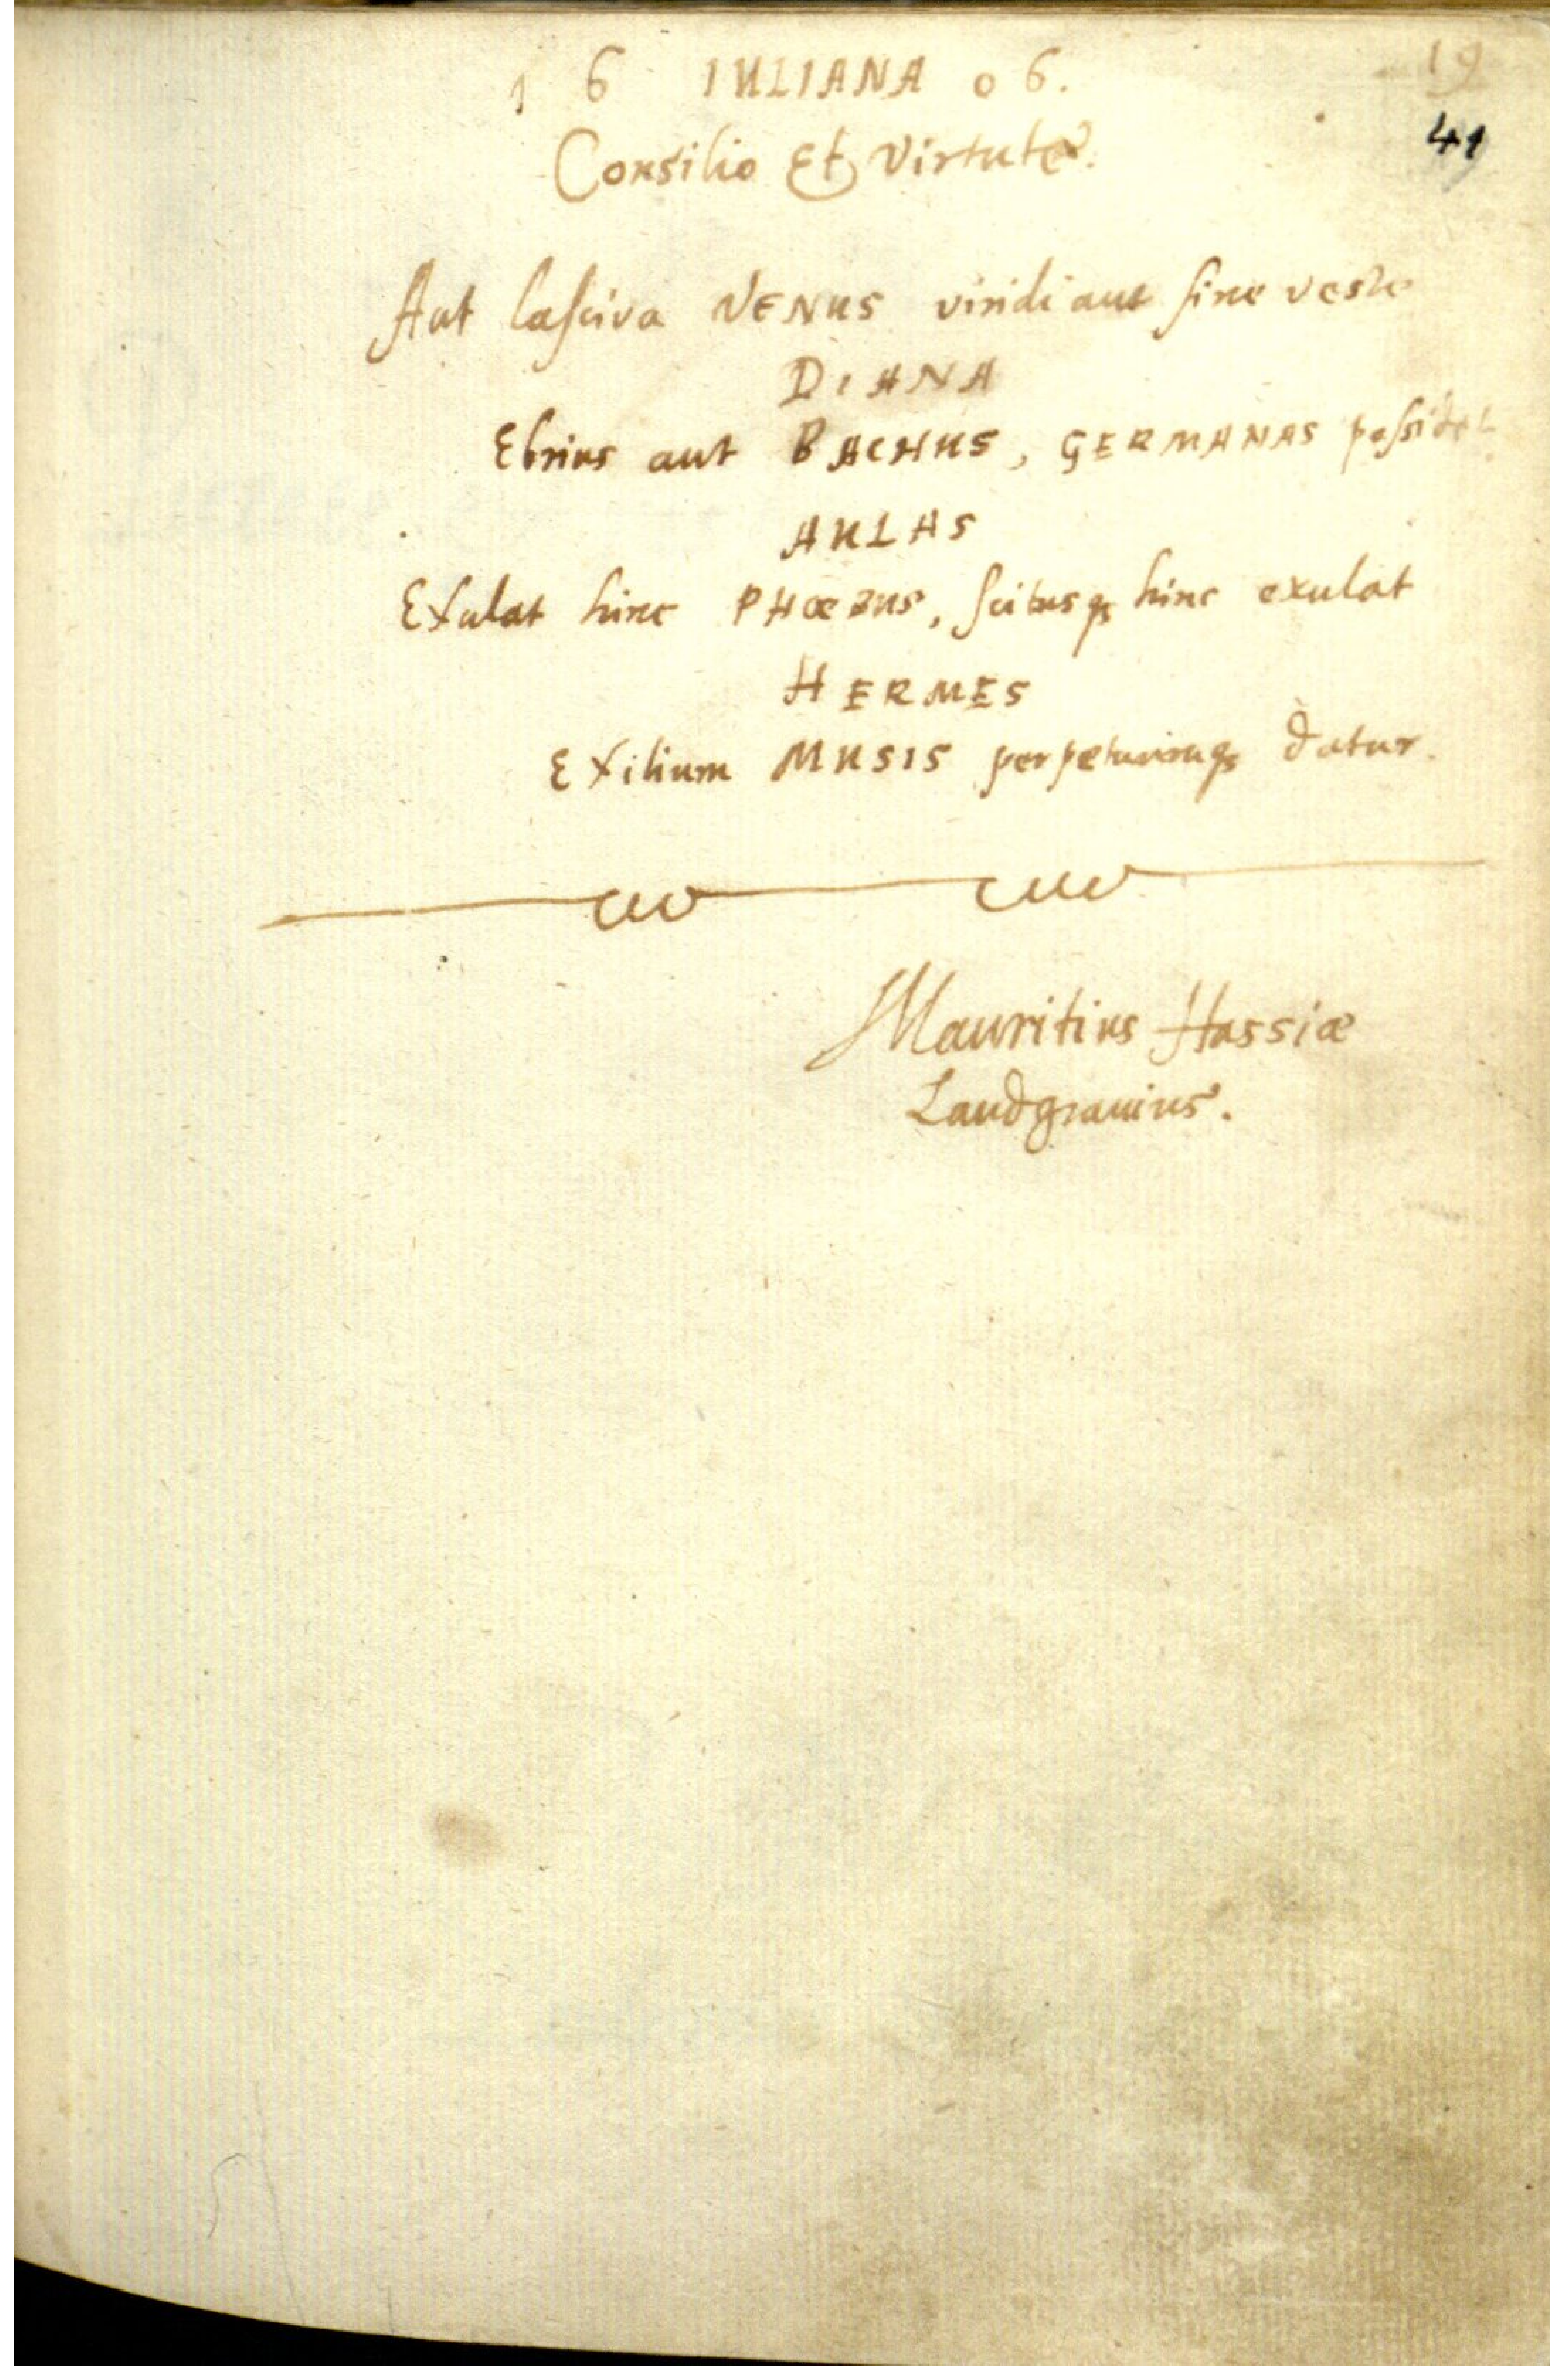 19
1 6 IULIANA 0 6.
41
Consilio Et Virtute.
Aut lasciva VENUS viridi aut sine veste
DIANA
Ebrius aut BACHUS, GERMANAS possidet
AULAS
Exulat hinc PHŒBUS, scitusq; hinc exulat
HERMES
Exilium MUSIS perpetuumq; datur.
Mauritius Hassiæ
Landgravius.